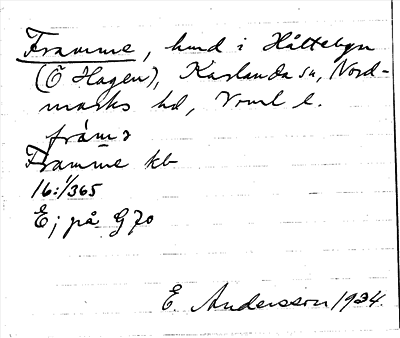 Framme, hmd i Håltebyn
(Ö Hagen), Karlanda sn, Nord-
marks hd, Vrml l.
fràmə
Framme kb
16:1/365
Ej på G70
E. Andersson 1934.